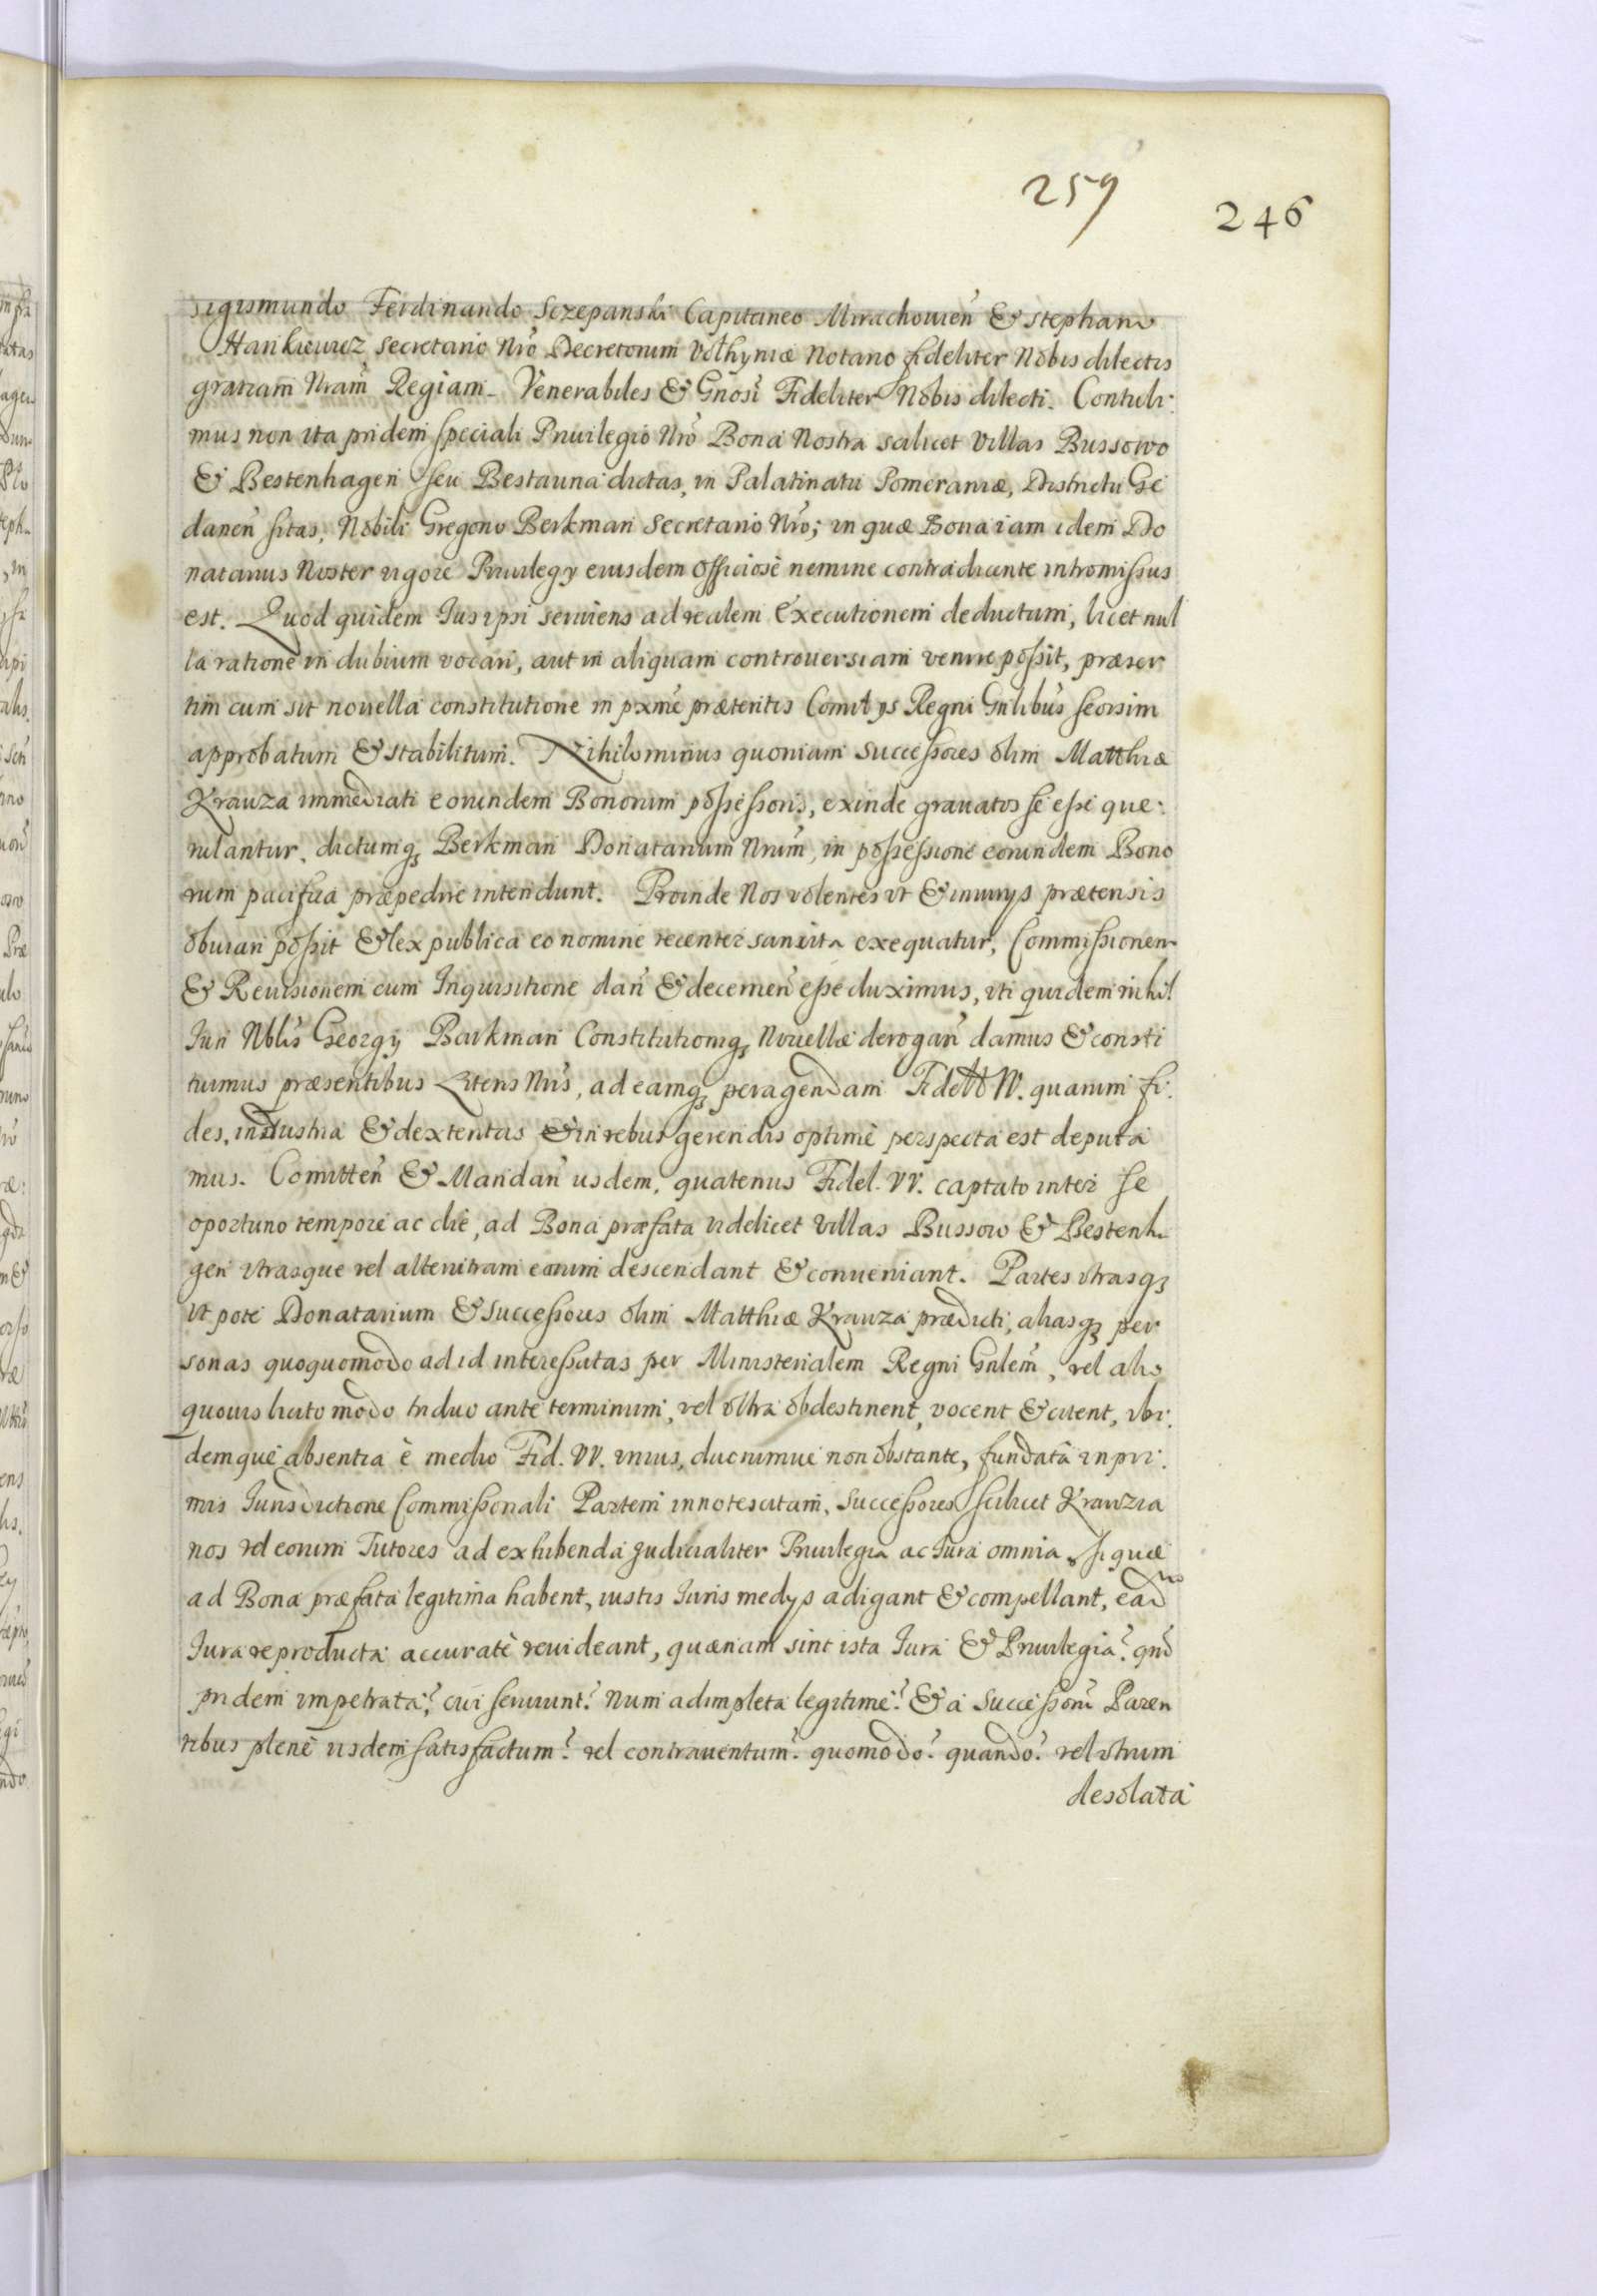 259
246
Sigismundo Ferdinando Sczepanski Capitaneo Mirachowien̄ & Stephano
Hankiewicz Secretario Nrō Decretorum Volhyniæ Notario fideliter Nobis dilectis
gratiam Nram̄ Regiam. Venerabiles & Gnosī Fideliter Nobis dilecti. Contuli:
mus non ita pridem speciali Priuilegio Nrō Bona Nostra scilicet Villas Bussowo
& Bestenhagen seu Bestauna dictas, in Palatinatu Pomeraniæ, Districtu Ge
danen̄ sitas, Nobili Gregorio Berkman Secretario Nrō; in quæ Bona iam idem Do
natarius Noster vigore Priuilegy eiusdem officiosè nemine contradicente intromissus
est. Quod quidem Jus ipsi seruiens ad realem Executionem deductum, licet nul
la ratione in dubium vocari, aut in aliquam controuersiam venire possit, præser
tim cum sit nouella constitutione in pxmē præteritis Comitys Regni Gnlibūs seorsim
approbatum & stabilitum. Nihilominus quoniam Successores olim Matthiæ
Krauza immediati eorundem Bonorum possessoris, exinde grauatos se esse que:
rulantur, dictumq₃ Berkman Donatarium Nrum̄, in possessione eorundem Bono
rum pacifica præpedire intendunt. Proinde Nos volentes vt & iniurys prætensis
obuiari possit & lex publica eo nomine recenter sancita exequatur, Commissionem
& Reuisionem cum Inquisitione dan̄ & decernen̄ esse duximus, vti quidem nihil
Juri Nblis̄ Georgy Barkman Constitutioniq₃ Nouellæ derogan̄ damus & consti
tuimus præsentibus Literis Nrīs, ad eamq₃ peragendam Fidett VV. quarum fi:
des, industria & dexteritas & in rebus gerendis optimè perspecta est deputa
mus. Comitten̄ & Mandan̄ ijsdem, quatenus Fidel. VV. captato inter se
oportuno tempore ac die, ad Bona præfata videlicet Villas Bussow & Bestenha
gen vtrasque vel alterutram earum descendant & conueniant. Partes vtrasq₃
vt pote Donatarium & Successores olim Matthiæ Krauza prædicti, aliasq₃ per
sonas quoquomodo ad id interessatas per Ministerialem Regni Gnlem̄, vel alio
quouis licito modo triduo ante terminum, vel vltra obdestinent, vocent & citent, ibi:
demque absentia è medio Fid. VV. vnius, duorumue non obstante, fundatâ in pri:
mis Jurisdictione Commissoriali Partem innotescitam, Successores scilicet Krauzia
nos vel eorum Tutores ad exhibenda judicialiter Priuilegia ac Jura omnia, si quæ
ad Bona præfata legitima habent, iustis Juris medys adigant & compellant, ead̄
Jura reproducta accuratè reuideant, quænam sint ista Jura & Priuilegia? qn̄d
pridem impetrata? cui seruiunt? num adimpleta legitimè? & à Successorū Paren
tibus plenè ijsdem satisfactum? vel contrauentum? quomodo? quando? vel vtrum
desolata